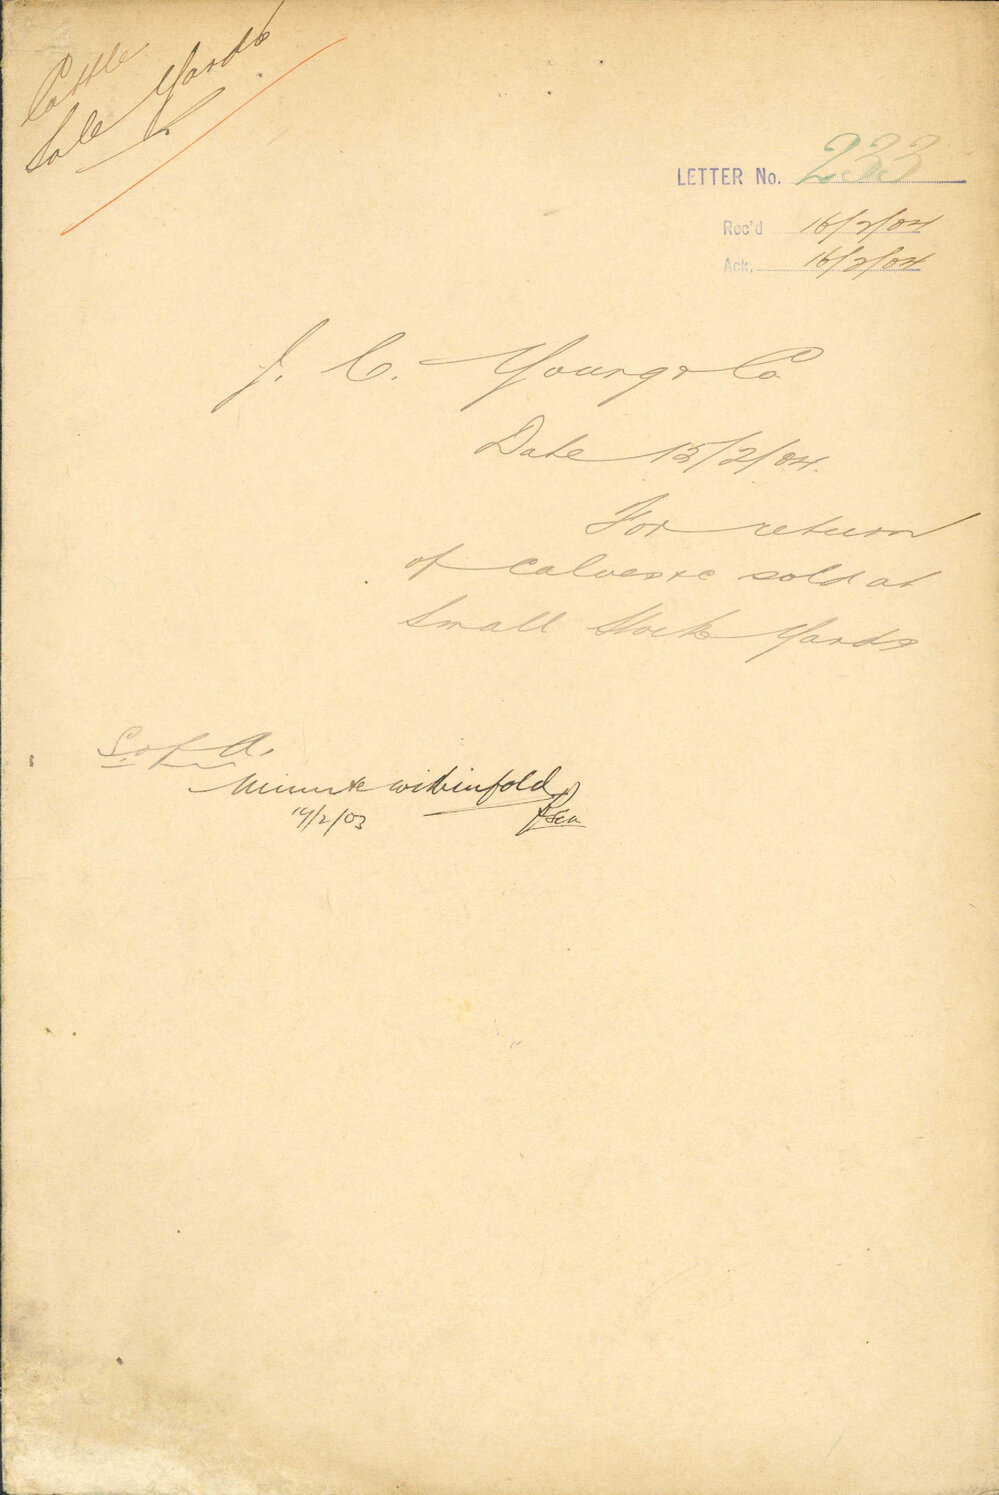 Cattle
Sale Yards
LETTER No. 233
Rec'd 16/2/04
Ack. 16/2/04
J. C. Young & Co
Date 15/2/04.
For return
of calves &c sold at
Small Stock Yards
S. of A.
Minute within fold
19/2/03